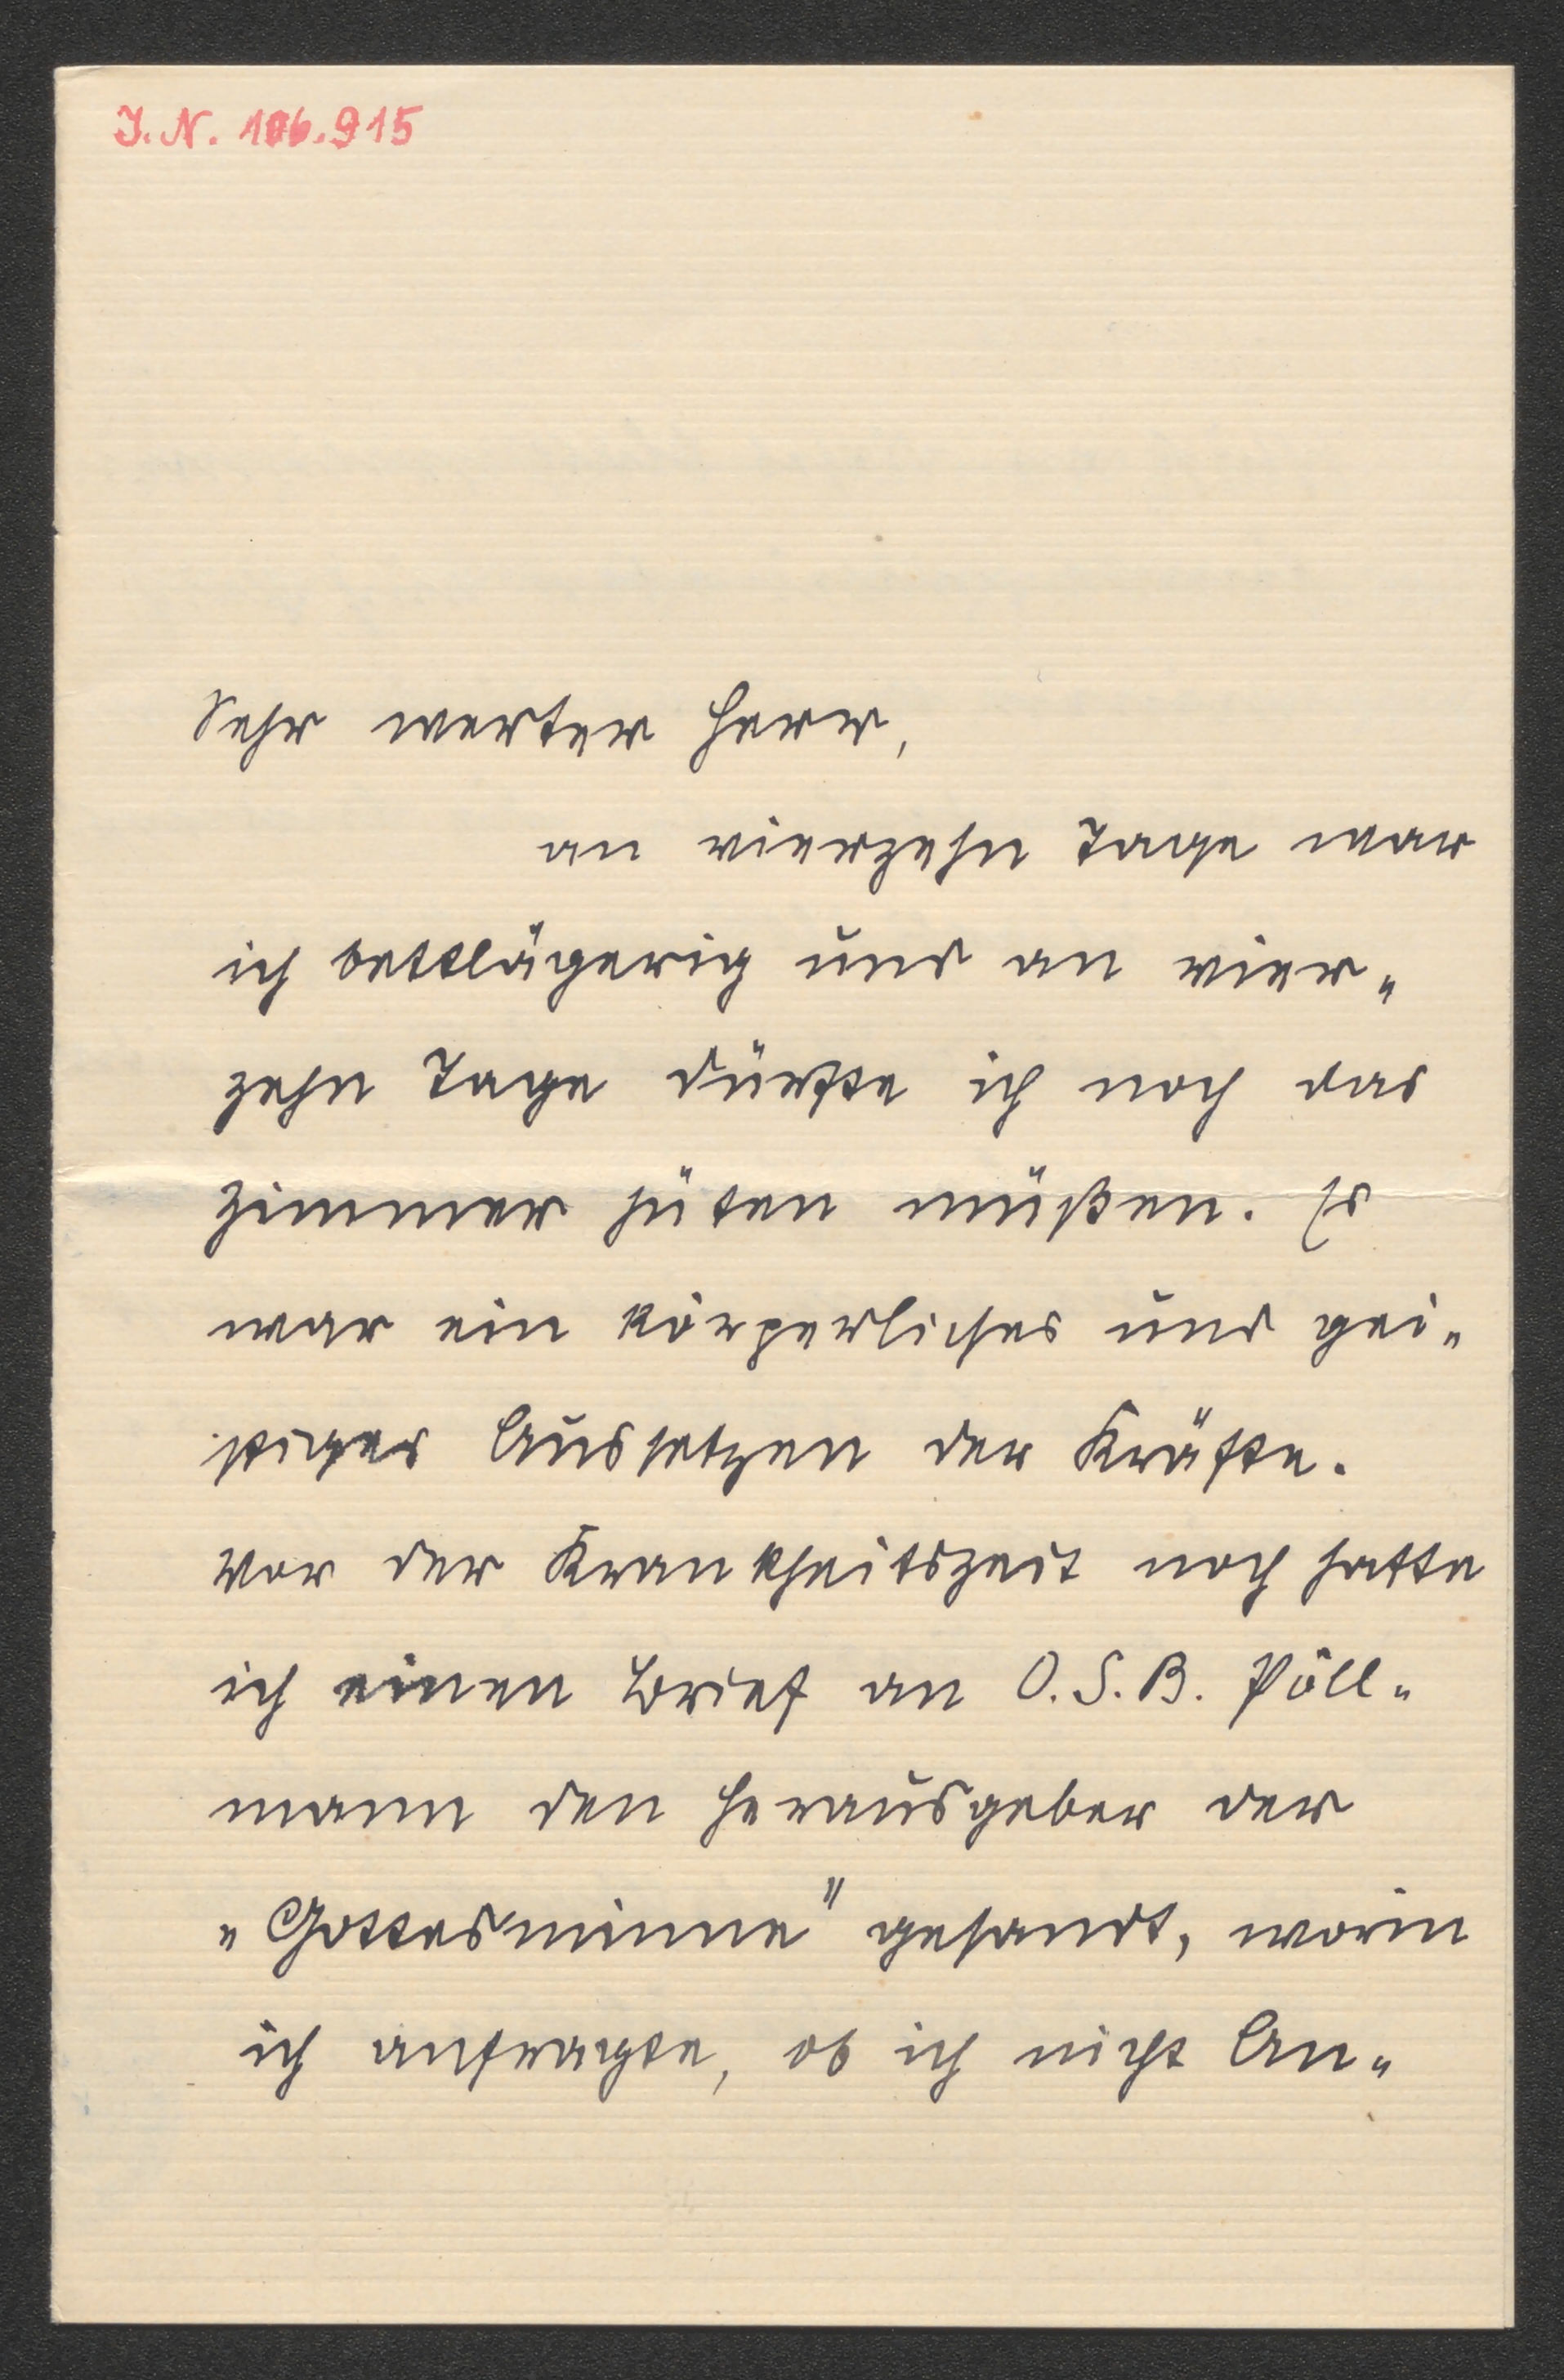 J.N. 106.915
Sehr werter Herr,
an vierzehn Tage war
ich bettlägerig und an vier„
zehn Tage dürfte ich noch das
Zimmer hüten müßen. Es
war ein körperliches und gei„
stiges Aussetzen der Kräfte.
Vor der Krankheitszeit noch hatte
ich einen Brief an O.S.B. Pöll„
mann den Herausgeber der
„Gottesminne" gesandt, worin
ich anfragte, ob ich nicht An„